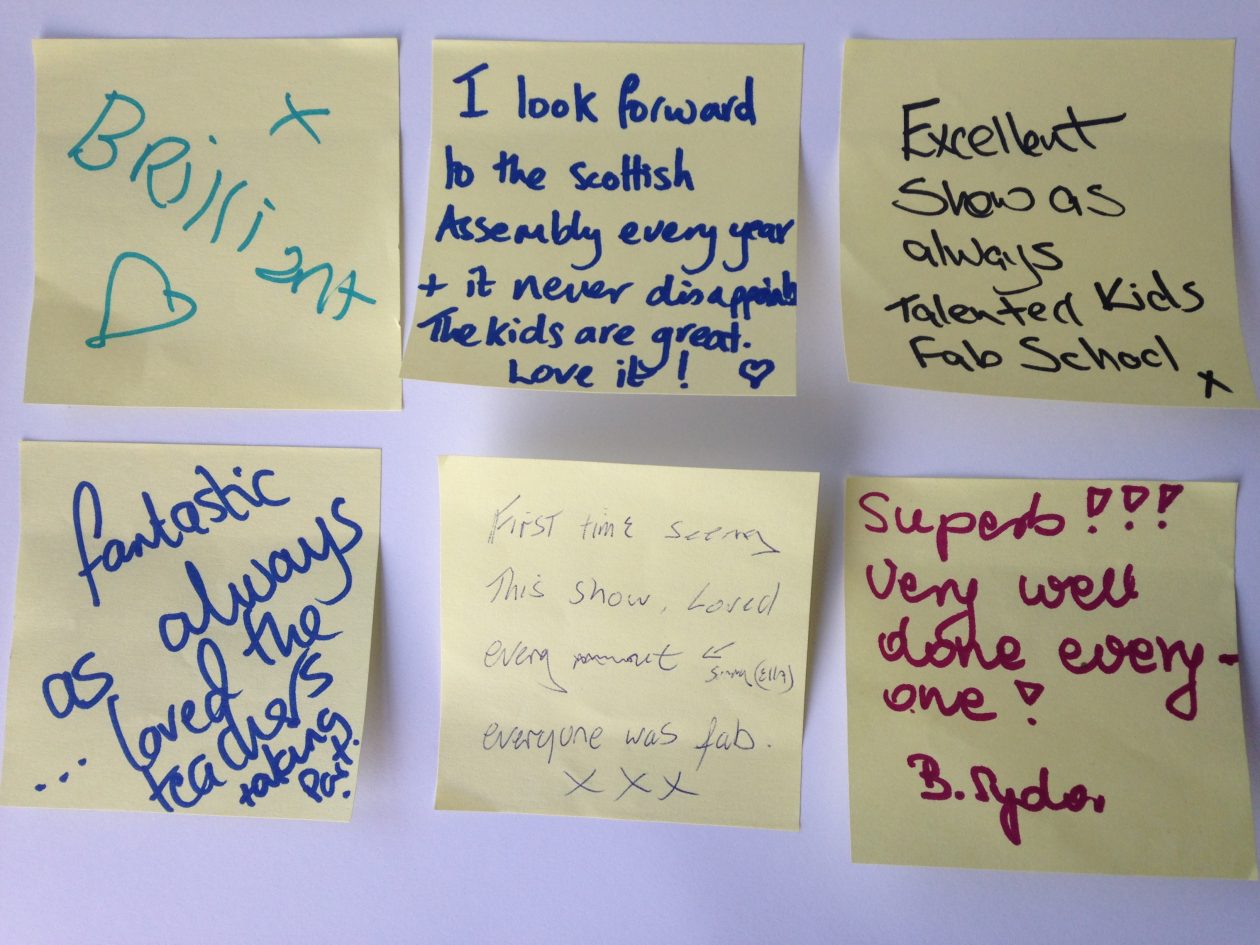 BRilliant x
I look forward
to the scottish
Assembly every year
+ it never disappoints
The kids are great.
Love it! ♡
Excellent
Show as
always
Talented Kids
Fab School
x
fantastic
as always
... loved the
teachers
taking
Part.
First time seeing
This show, Loved
every
(Ella)
everyone was fab.
x x x
Superb!!!
Very well
done every-
one!
B.